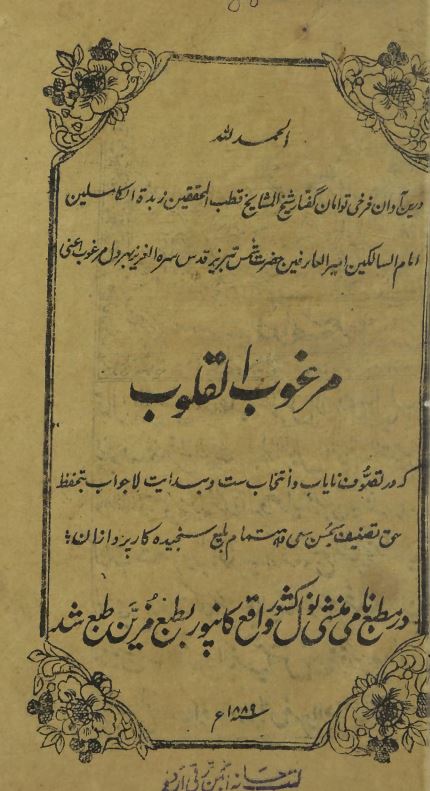 الحمد للہ
درین آوان فرخی توامان گفتار شیخ المشایخ قطب المحققین زبدة الکاملین
امام السالکین امیر العارفین حضرت شمس تبریز قدس سرہ العزیز بہر دل مرغوب اعنی
مرغوب القلوب
کہ در تصوف نایاب و انتخاب ست و بہدایت لاجواب بتحفظ
حق تصنیف بحسن سعی و اہتمام بلیغ سنجیدہ کارپردازان
در مطبع نامی منشی نول کشور واقع کانپور بطبع مزین طبع شد
۱۸۸۹ء
کتب خانہ انجمن ترقی اردو